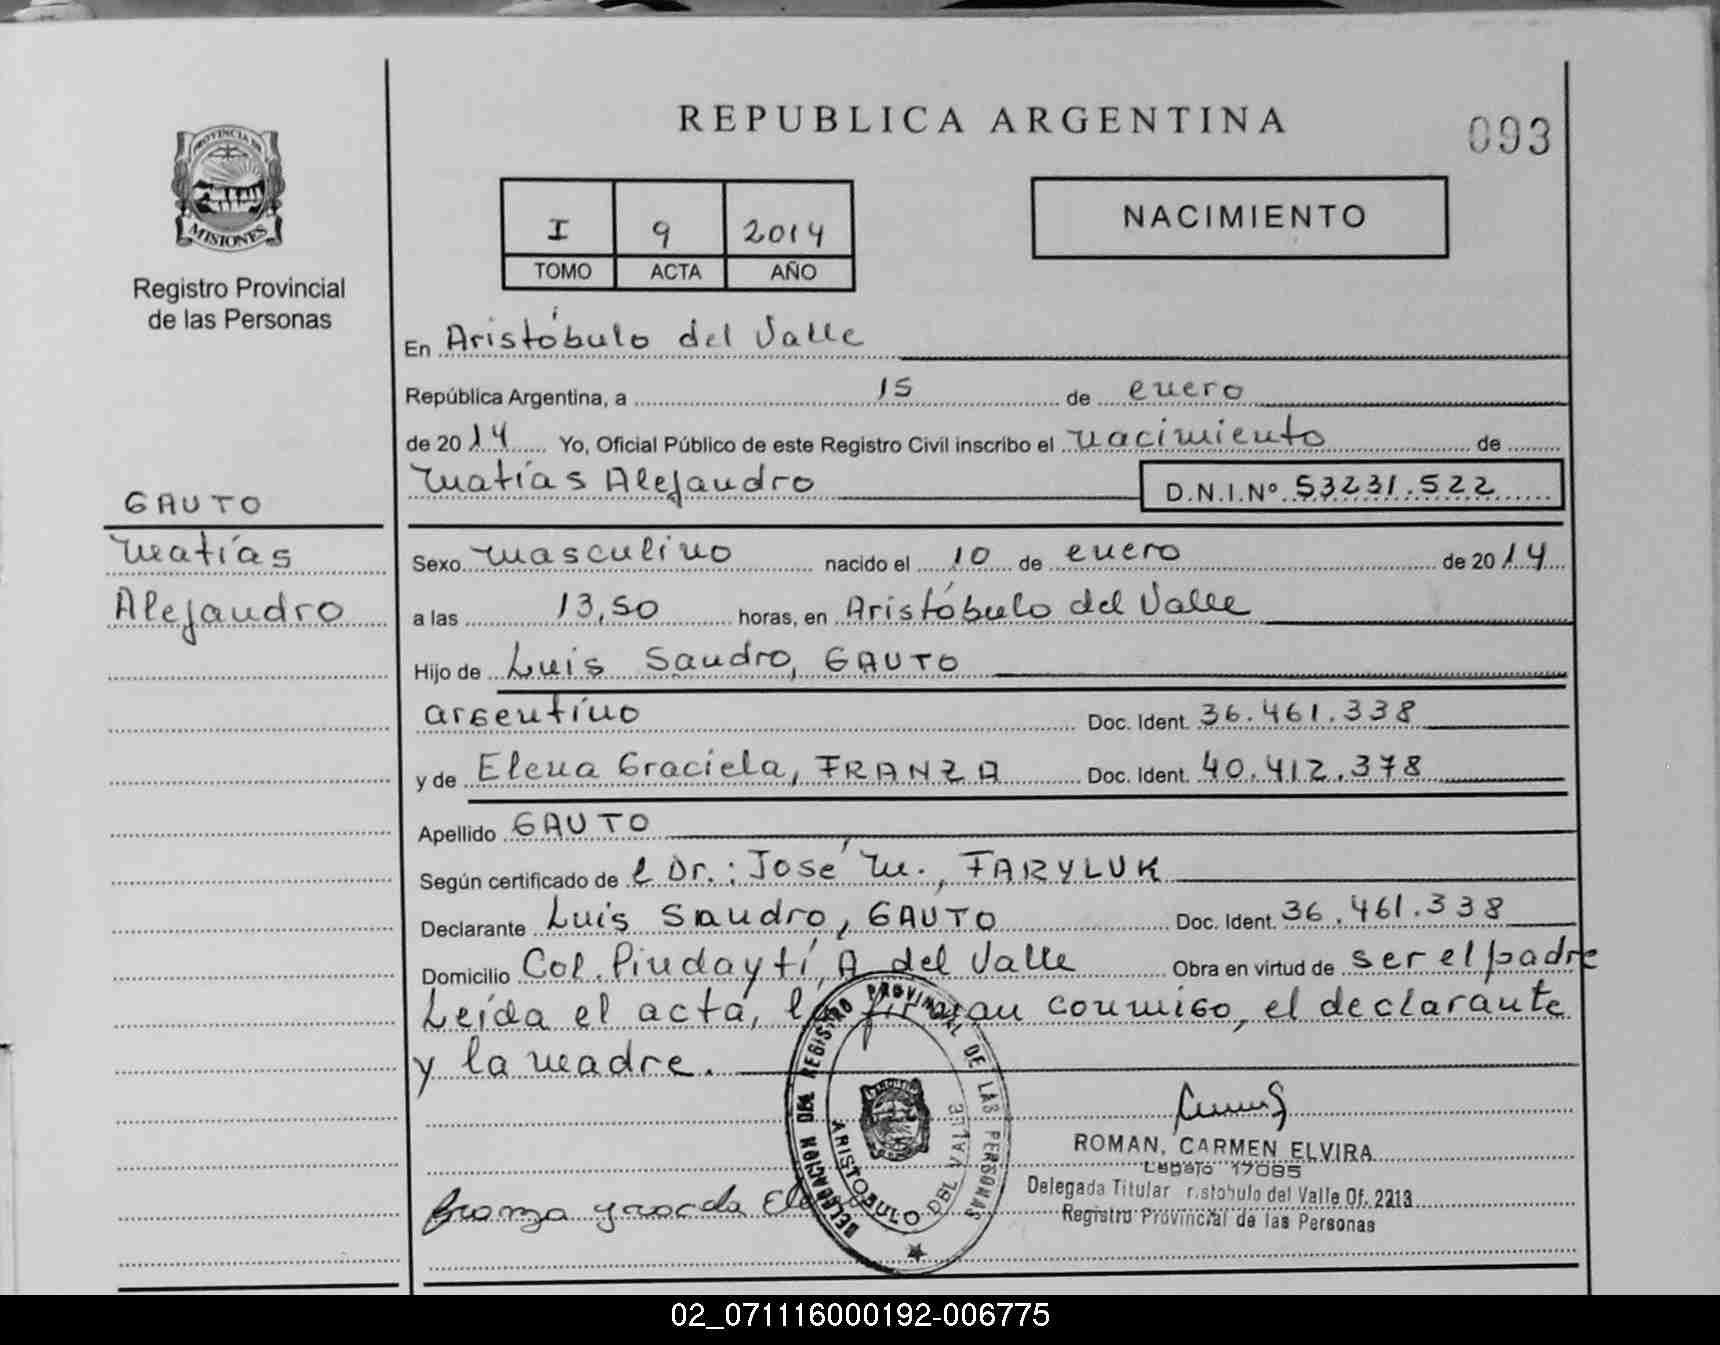 REPUBLICA ARGENTINA
093
PROVINCIA DE
MISIONES
Registro Provincial
de las Personas
I 9 2014
TOMO ACTA AÑO
NACIMIENTO
En Aristóbulo del Valle
República Argentina, a 15 de enero
de 2014 Yo, Oficial Público de este Registro Civil inscribo el nacimiento de
Matías Alejandro D.N.I.Nº 53231.522
GAUTO
Matías
Alejandro
Sexo masculino nacido el 10 de enero de 2014
a las 13,50 horas, en Aristóbulo del Valle
Hijo de Luis Sandro, GAUTO
argentino Doc. Ident. 36.461.338
y de Elena Graciela, FRANZA Doc. Ident. 40.412.378
Apellido GAUTO
Según certificado de l Dr.: José M., FARYLUK
Declarante Luis Sandro, GAUTO Doc. Ident. 36.461.338
Domicilio Col. Pindaytí, A. del Valle Obra en virtud de ser el padre
Leída el acta, la firman conmigo, el declarante
y la madre.
DELEGACION DEL REGISTRO PROVINCIAL DE LAS PERSONAS
ARISTOBULO DEL VALLE
ROMAN, CARMEN ELVIRA
Legajo 17085
Delegada Titular ristobulo del Valle Of. 2213
Registro Provincial de las Personas
Franza
02_071116000192-006775